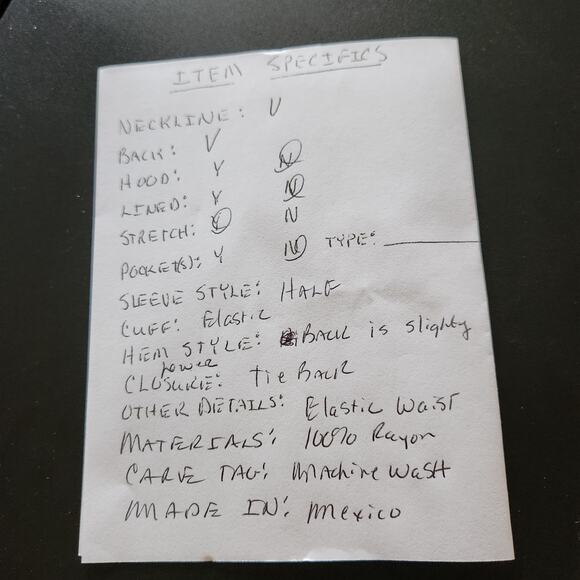 ITEM SPECIFICS
NECKLINE: V
BACK: V
HOOD: Y N
LINED: Y N
STRETCH: Y N
POCKET(S): Y N TYPE:
SLEEVE STYLE: HALF
CUFF: Elastic
HEM STYLE: BACK is slighty
lower
CLOSURE: tie BACK
OTHER DETAILS: Elastic Waist
MATERIALS: 100% Rayon
CARE TAG: Machine wash
MADE IN: Mexico